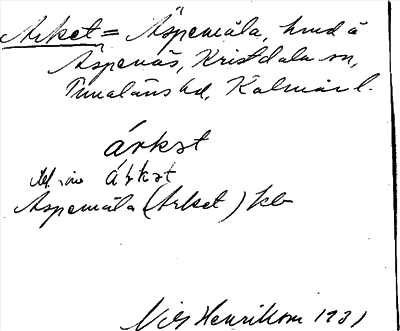 Arket = Äspemåla, hmd å
Äspenäs, Kristdala sn,
Tunaläns hd, Kalmar l.
árkət
árkət
Aspemåla (Arket) kb
Nils Henriksson 1931